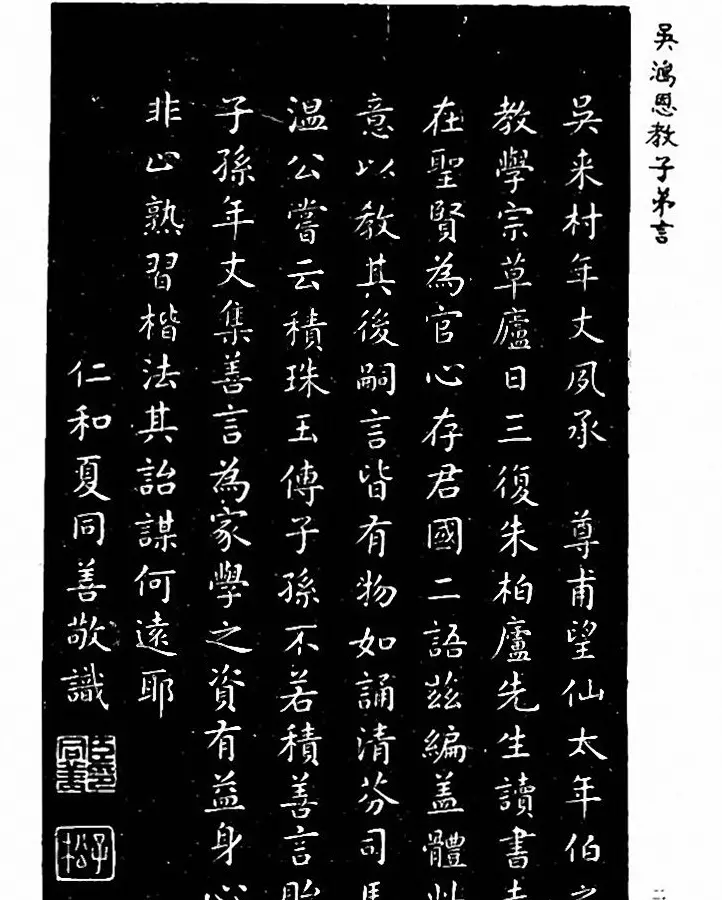 吳鴻恩教子弟言
吳来村年丈夙承 尊甫望仙太年伯之
教學宗草廬日三復朱柏廬先生讀書志
在聖賢為官心存君國二語茲編盖體此
意以教其後嗣言皆有物如誦清芬司馬
温公嘗云積珠玉傳子孫不若積善言貽
子孫年丈集善言為家學之資有益身心
非止熟習楷法其詒謀何遠耶
仁和夏同善敬識
臣夏同善
子松